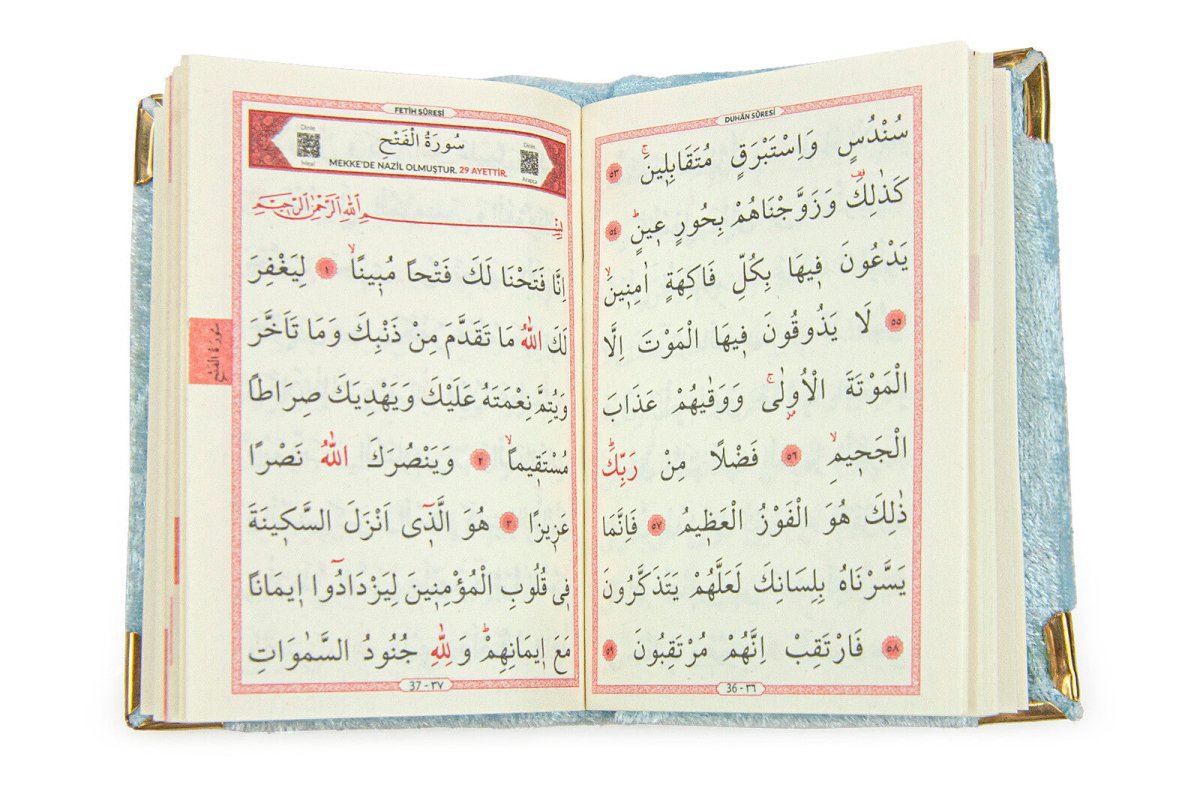 DUHÂN SÛRESİ
سُنْدُسٍ وَاِسْتَبْرَقٍ مُتَقَابِل۪ينَۚ ٥٣
كَذٰلِكَ۠ وَزَوَّجْنَاهُمْ بِحُورٍ ع۪ينٍۜ ٥٤
يَدْعُونَ ف۪يهَا بِكُلِّ فَاكِهَةٍ اٰمِن۪ينَۙ
٥٥ لَا يَذُوقُونَ ف۪يهَا الْمَوْتَ اِلَّا
الْمَوْتَةَ الْاُو۫لٰىۚ وَوَقٰيهُمْ عَذَابَ
الْجَح۪يمِۙ ٥٦ فَضْلًا مِنْ رَبِّكَۜ
ذٰلِكَ هُوَ الْفَوْزُ الْعَظ۪يمُ ٥٧ فَاِنَّمَا
يَسَّرْنَاهُ بِلِسَانِكَ لَعَلَّهُمْ يَتَذَكَّرُونَ
٥٨ فَارْتَقِبْ اِنَّهُمْ مُرْتَقِبُونَ ٥٩
36 - ٣٦
FETİH SÛRESİ
سُورَةُ الْفَتْحِ
MEKKE'DE NAZİL OLMUŞTUR. 29 AYETTİR.
Dinle
Meal
Dinle
Arapça
بِسْمِ اللّٰهِ الرَّحْمٰنِ الرَّح۪يمِ
اِنَّا فَتَحْنَا لَكَ فَتْحاً مُب۪يناًۙ ١ لِيَغْفِرَ
لَكَ اللّٰهُ مَا تَقَدَّمَ مِنْ ذَنْبِكَ وَمَا تَاَخَّرَ
وَيُتِمَّ نِعْمَتَهُ عَلَيْكَ وَيَهْدِيَكَ صِرَاطاً
مُسْتَق۪يماًۙ ٢ وَيَنْصُرَكَ اللّٰهُ نَصْرًا
عَز۪يزًا ٣ هُوَ الَّذ۪ٓى اَنْزَلَ السَّك۪ينَةَ
ف۪ى قُلُوبِ الْمُؤْمِن۪ينَ لِيَزْدَادُٓوا ا۪يمَانًا
مَعَ ا۪يمَانِهِمْۜ وَلِلّٰهِ جُنُودُ السَّمٰوَاتِ
37 - ٣٧
سورة الفتح